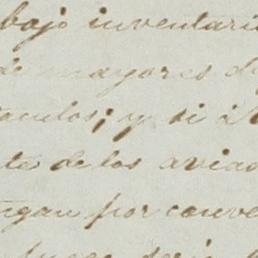 bajo inventari
de mayores d
culos; y si
te de los aviad
ngan por conve